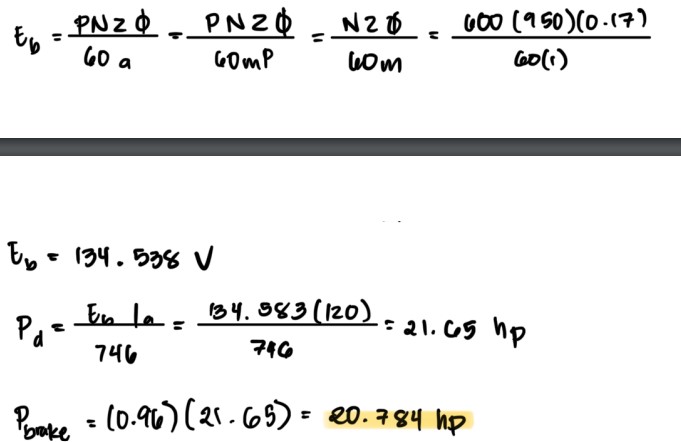 E_b = PNZΦ / 60 a = PNZΦ / 60mP = NZΦ / 60m = 600 (950)(0.17) / 60(1)
E_b = 134.538 V
P_d = E_b I_a / 746 = 134.583 (120) / 746 = 21.65 hp
P_brake = (0.96)(21.65) = 20.784 hp